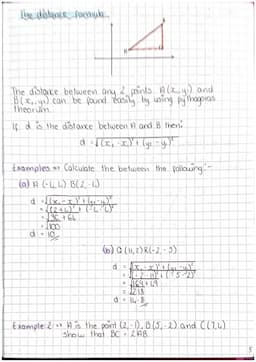 The distance formula.
A
The distance between any 2 points A(x₁y₁) and
B(x₂,y₂) can be found easily by using pythagoras
theorem.
If d is the distance between A and B then:
d = √(x₂-x₁)²+(y₂-y₁)²
Examples => Calculate the between the following:-
(a) A (-4,4) B(2,-4)
d = √(x₂-x₁)²+(y₂-y₁)²
= √(2+4)²+(-4-4)²
= √36+64
= √100
d = 10
(b) Q (11,2) R(-2,-5)
d = √(x₂-x₁)²+(y₂-y₁)²
= √(-2-11)²+(-5-2)²
= √169+49
= √218
d = 14.8
Example 2 => A is the point (2,-1), B(5,-2) and C(7,4)
show that BC = 2AB